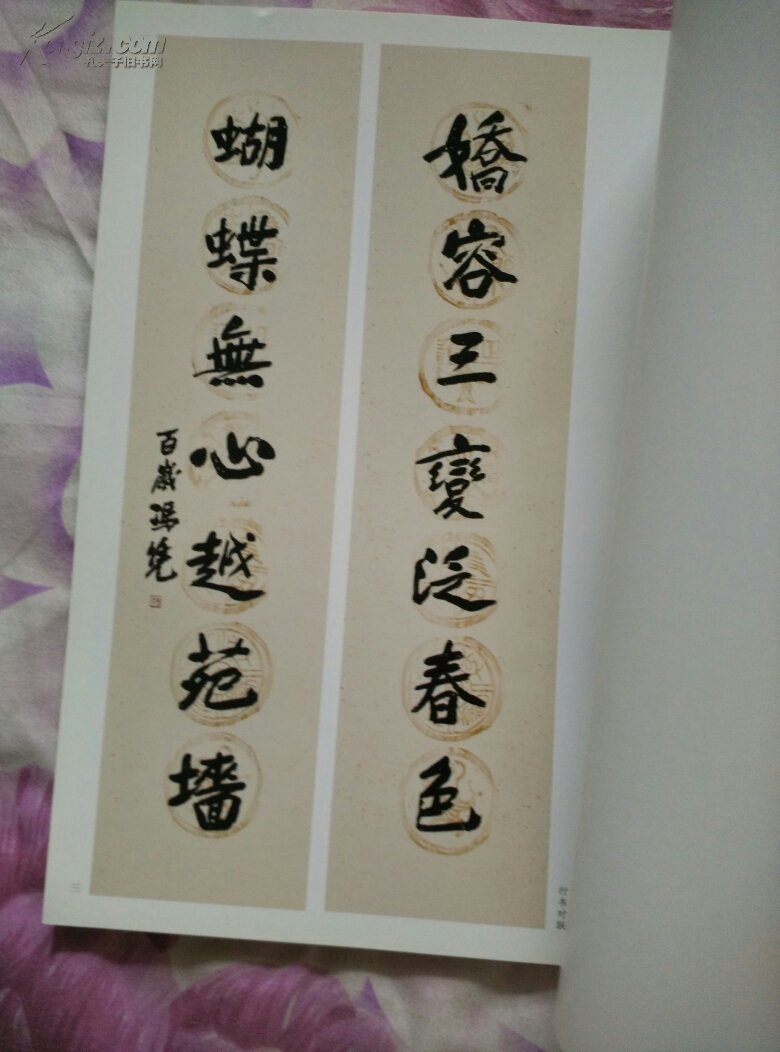 Kongfz.com
孔夫子旧书网
嬌容三變泛春色
蝴蝶無心越苑墻
百歲
行书对联
三